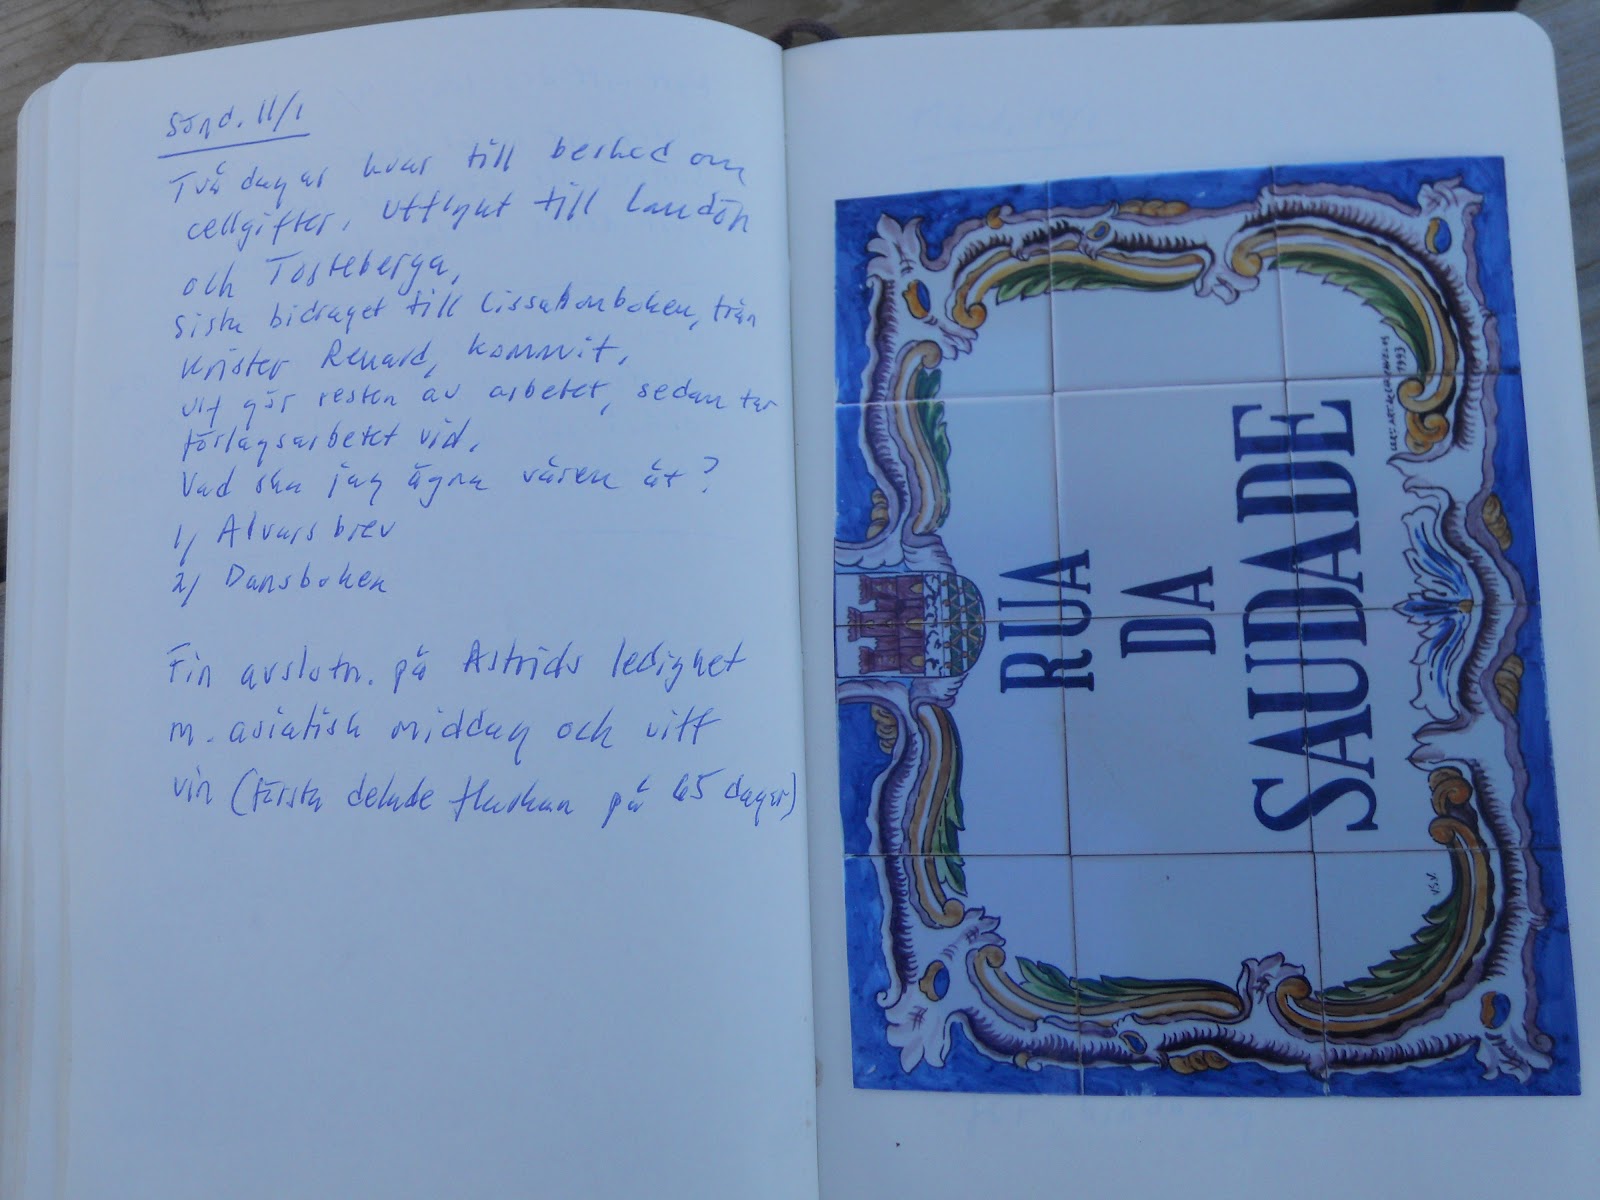 Sönd. 11/1
Två dagar kvar till besked om
cellgifter, utflykt till Landön
och Tosteberga,
Sista bidraget till Lissabonboken, från
Krister Renard, kommit.
Ulf gör resten av arbetet, sedan tar
förlagsarbetet vid.
Vad ska jag ägna våren åt?
1/ Alvars brev
2/ Dansboken
Fin avslutn. på Astrids ledighet
m. asiatisk middag och vitt
vin (första delade flaskan på 65 dagar)
RUA
DA
SAUDADE
1993
V.S.V.